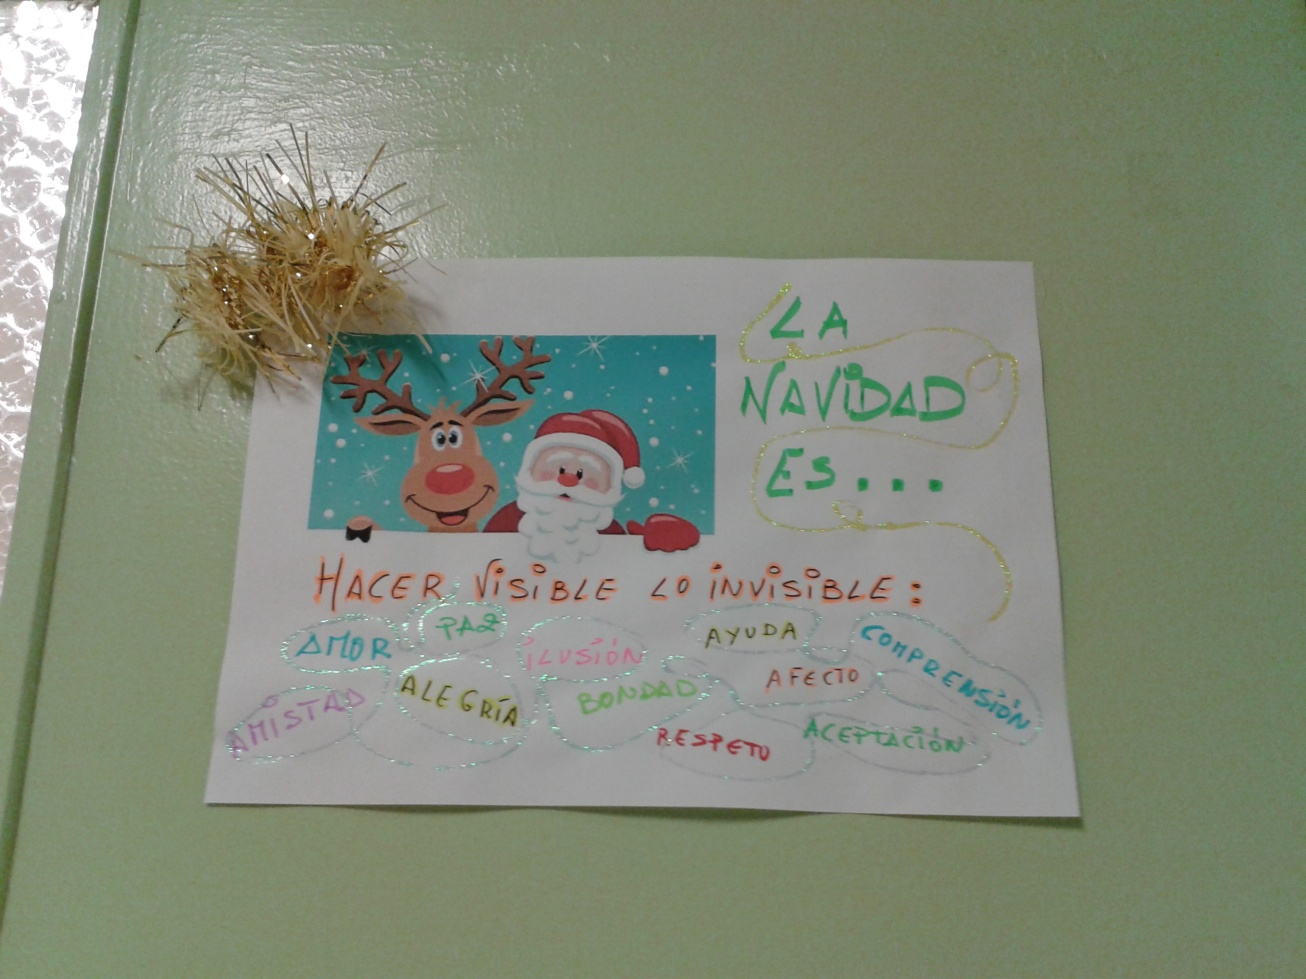 LA
NAVIDAD
ES...
HACER VISIBLE LO INVISIBLE:
AMOR PAZ ILUSIÓN AYUDA COMPRENSIÓN
AMISTAD ALEGRÍA BONDAD AFECTO
RESPETO ACEPTACIÓN